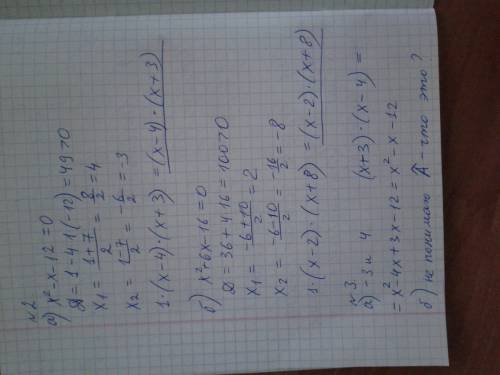 №2.
а) x²-x-12=0
D=1-4·1(-12)=49>0
x₁ = (1+7)/2 = 8/2 = 4
x₂ = (1-7)/2 = -6/2 = -3
1·(x-4)·(x+3) = (x-4)·(x+3)
б) x²+6x-16=0
D=36+4·16=100>0
x₁ = (-6+10)/2 = 2
x₂ = (-6-10)/2 = -16/2 = -8
1·(x-2)·(x+8) = (x-2)·(x+8)
№3.
а) -3 и 4 (x+3)·(x-4) =
= x²-4x+3x-12 = x²-x-12
б) не понимаю - что это?